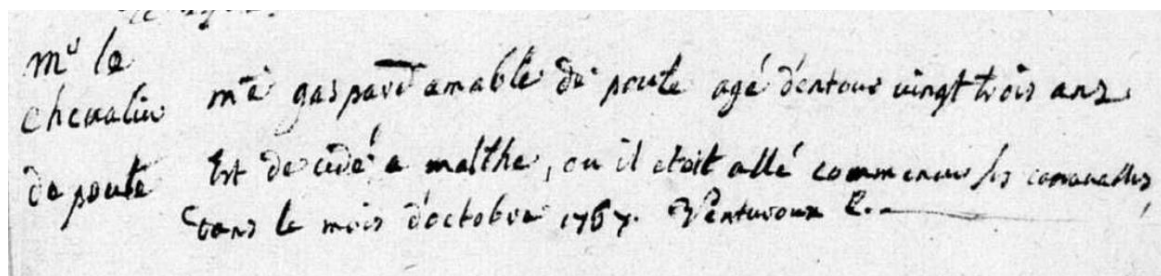 mr le
chevalier
de poute
mre gaspard amable de poute agé d'entour vingt trois ans
Est decedé a malthe, ou il etoit allé commencer ses caravannes,
dans le mois d'octobre 1767. Venturoux C.